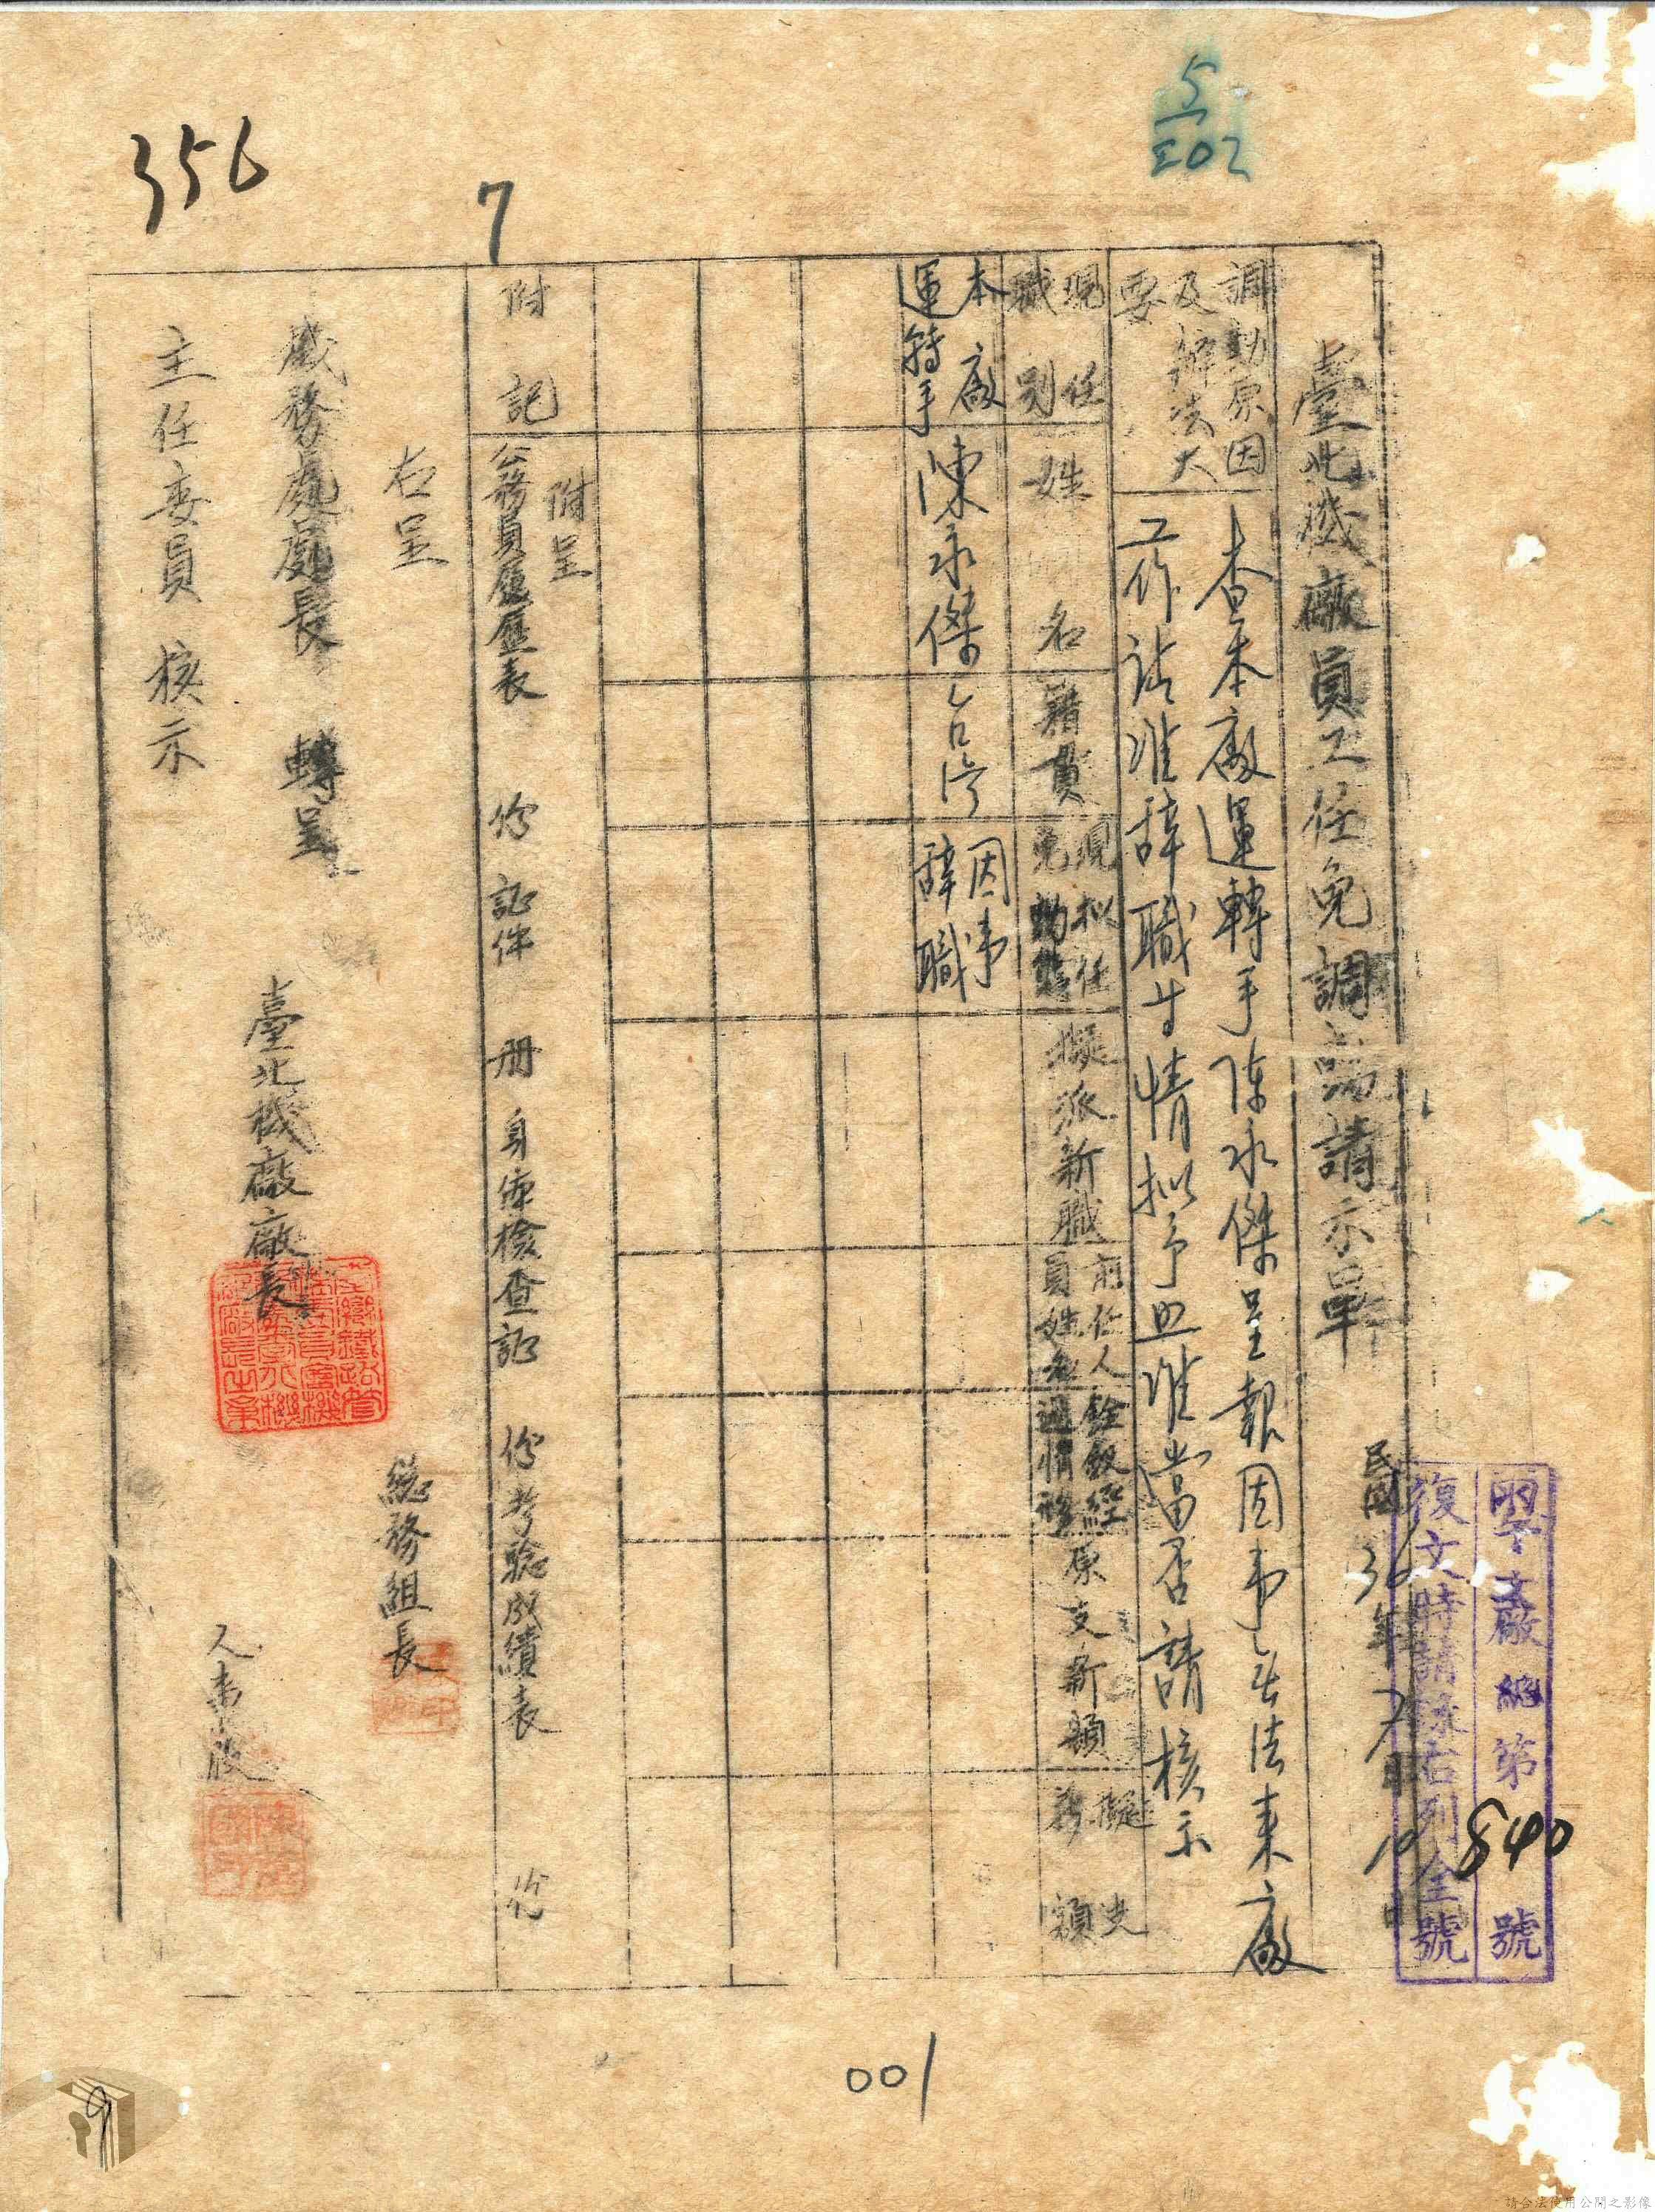 5
202
356
7
臺北機廠員工任免調請示單
民國36年7月10日
字廠總第840號
復文時請詠右列全號
調動原因
及辦法大
要
查本廠運轉手陳永傑呈報因事無法來廠
工作請准辭職等情拟予照准當否請核示
現任
職別
姓名
籍貫
現拟任
免動
擬派新職
前任人
員姓名
銓敘經
過情形
原支薪額
擬支
薪額
本廠
運轉手
陳永傑
台灣
因事
辭職
附記
附呈
公務員履歷表 份 証件 册 身體檢查証 份 考驗成績表 份
右呈
處處長 轉呈
主任委員 核示
臺北機廠廠長
總務組長
人事股
001
9
請合法使用公開之影像